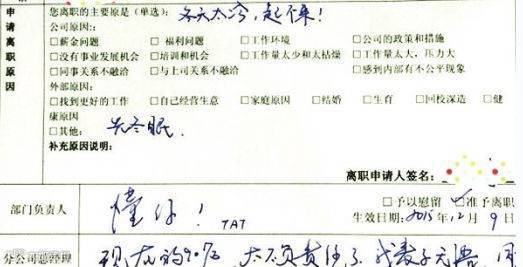 申请离职原因
您离职的主要原是(单选): 冬天太冷,起不来!
公司原因:
□薪金问题 □福利问题 □工作环境 □公司的政策和措施
□没有事业发展机会 □培训和机会 □工作量太少和太枯燥 □工作量太大,压力大
□同事关系不融洽 □与上司关系不融洽 □感到内部有不公平现象
外部原因:
□找到更好的工作 □自己经营生意 □家庭原因 □结婚 □生育 □回校深造 □健
康原因
□其他: 先冬眠.
补充原因说明:
离职申请人签名:
□予以慰留 □准予离职
部门负责人 懂你! TAT
生效日期: 2015 12月9日
分公司总经理 现在的90后 太不负责任了